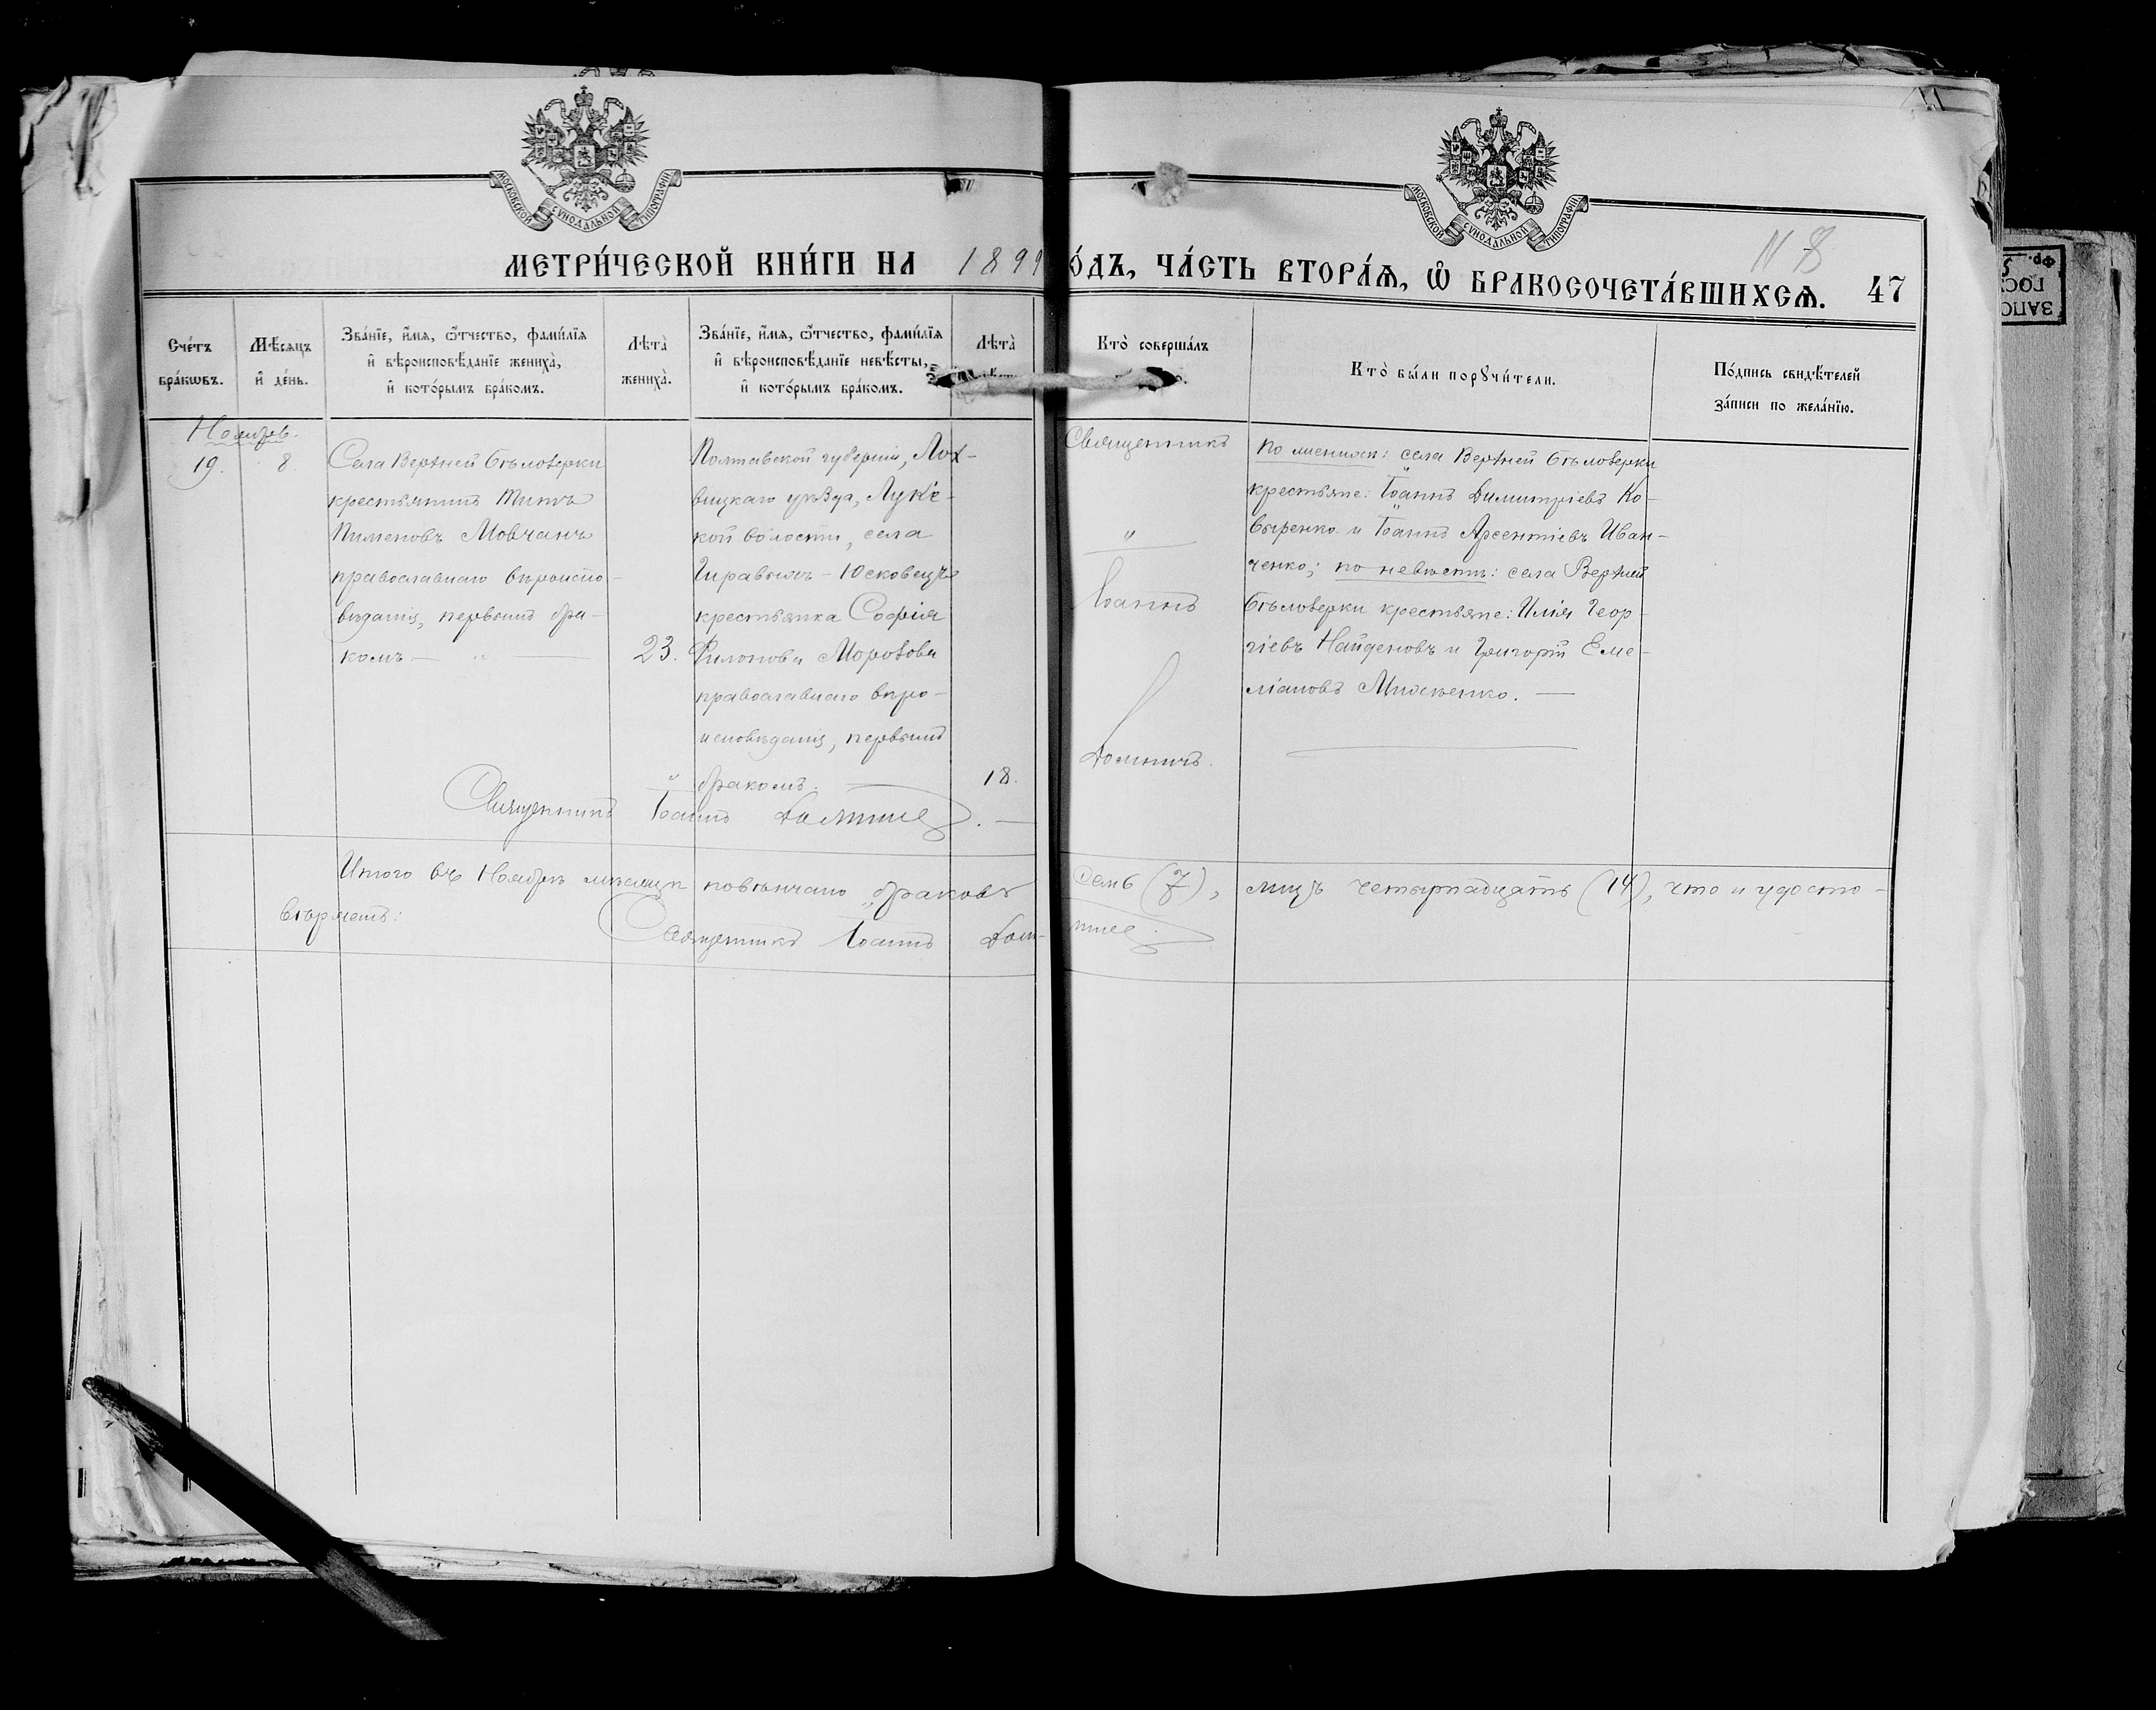 МОСКОВСКОЙ СУНОДАЛЬНОЙ ТИПОГРАФІИ
МОСКОВСКОЙ СУНОДАЛЬНОЙ ТИПОГРАФІИ
МЕТРИ́ЧЕСКОЙ КНИ́ГИ НА 1899
О́ДЪ, ЧА́СТЬ ВТОРА́Я, Ѽ БРАКОСОЧЕТА́ВШИХСЯ. 47
118
Сче́тъ бра́кѡвъ.
Мѣ́сяцъ и҆ де́нь.
Зва́нїе, и҆́мя, ѻ҆́тчество, фами́лїя
и҆ вѣроисповѣ́данїе жениха̀,
и҆ кото́рымъ бра́комъ.
Лѣта̀ жениха̀.
Зва́нїе, и҆́мя, ѻ҆́тчество, фами́лїя
и҆ вѣроисповѣ́данїе невѣ́сты,
и҆ кото́рымъ бра́комъ.
Лѣта̀
Кто̀ соверша́лъ
Кто̀ бы́ли порꙋчи́тели.
По́дпись свидѣ́телей
за́писи по жела́нїю.
Ноябрь.
19. 8.
Села Верхней Бѣлозерки
крестьянинъ Титъ
Пименовъ Мовчанъ
православнаго вѣроиспо-
вѣданія, первымъ бра-
комъ — " —
23.
Полтавской губерніи, Лох-
вицкаго уѣзда,
кой волости, села
Юсковецъ
крестьянка Софія
Филонова Морозова
православнаго вѣро-
исповѣданія, первымъ
бракомъ. —
18.
Священникъ
"
Іоаннъ
По женихѣ: села Верхней Бѣлозерки
крестьяне: Іоаннъ Димитріевъ Ко-
выренко и Іоаннъ Арсентіевъ Иван-
ченко; по невѣстѣ: села Верхней
Бѣлозерки крестьяне: Илія Геор-
гіевъ Найденовъ и Григорій Еме-
ліановъ —
Священникъ Іоаннъ
Итого въ Ноябрѣ мѣсяцѣ повѣнчано браковъ семь (7), лицъ четырнадцать (14), что и удосто-
вѣряетъ: Священникъ Іоаннъ